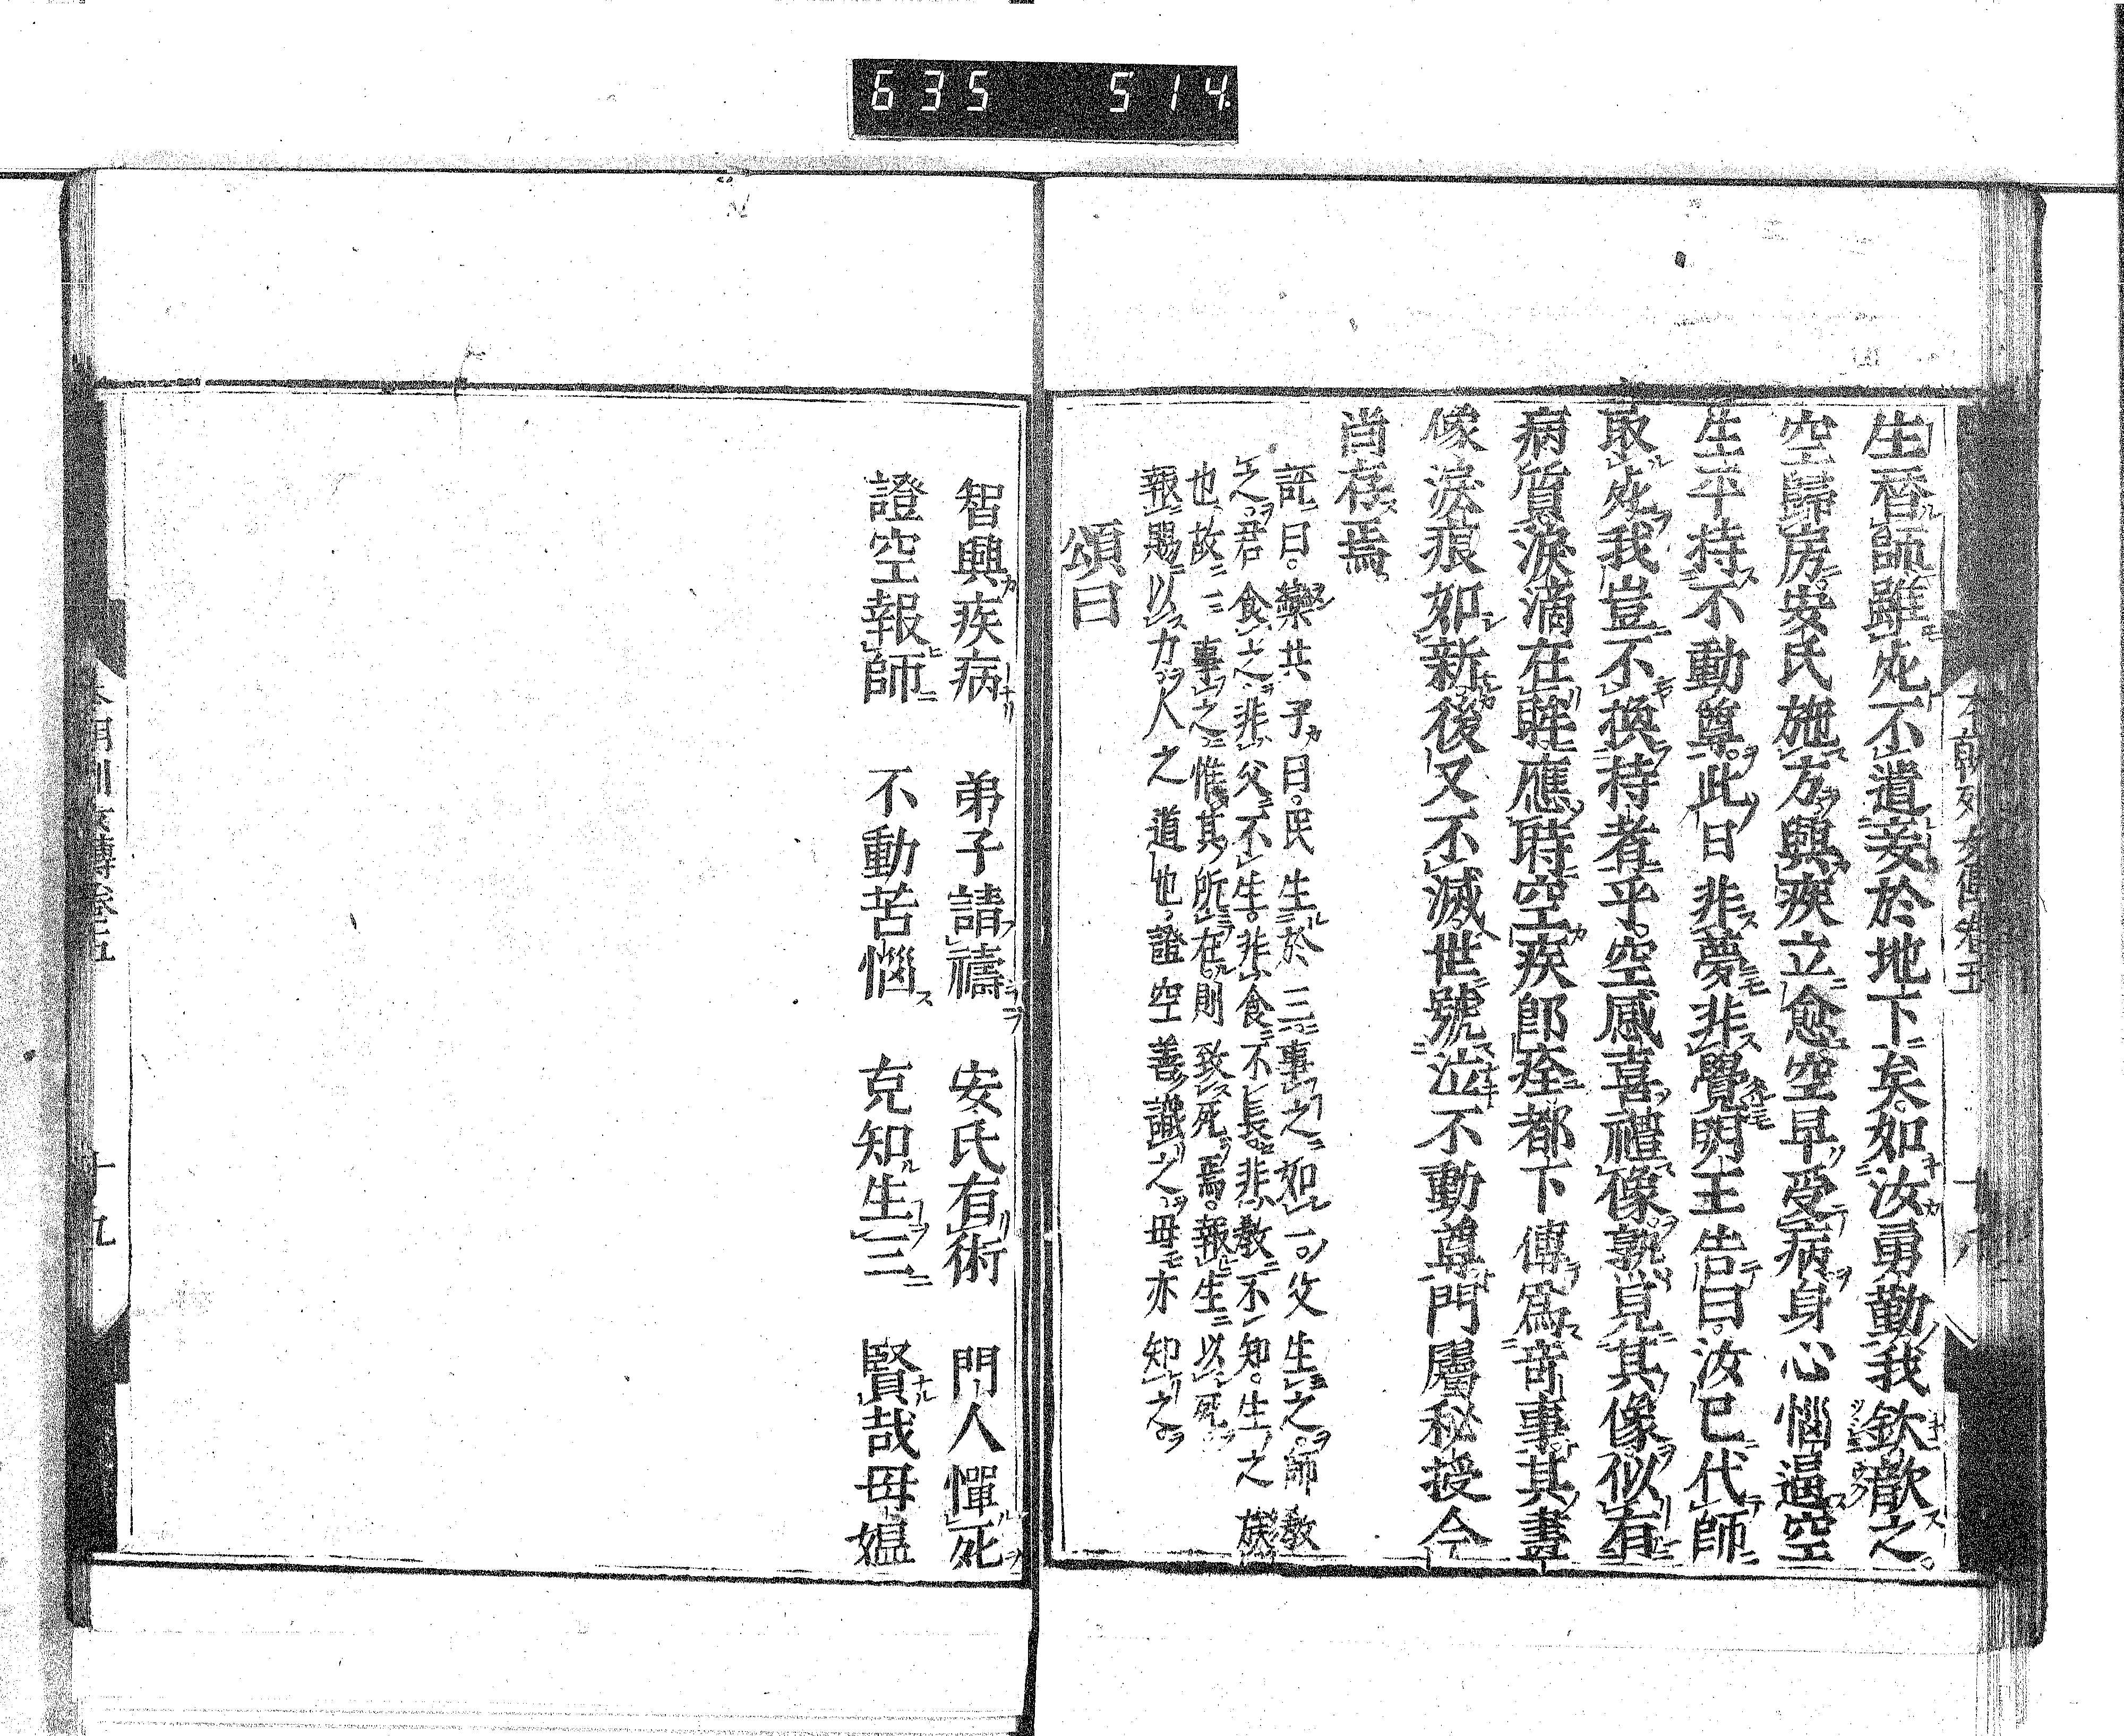 635 514
本朝列女傳卷五 十八
生吝師雖死不遣妄於地下矣如汝勇勤我欽歆之
空歸房安氏施方興疾立愈空早受病身心惱逼空
生平持不動尊此日非夢非覺明王告曰汝已代師
取死我豈不換持者乎空感喜禮像孰見其像似有
病質淚滴在眸應時空疾卽痊都下傳爲奇事其畫
像淚痕如新後又不滅世號泣不動尊門屬秘授今
尚存焉
註曰欒共子曰民生於三事之如一父生之師教
之君食之非父不生非食不長非教不知生之族
也故一事之惟其所在則致死焉報生以死
報賜以力人之道也證空善識之母亦知之
頌曰
智興疾病 弟子請禱 安氏有術 門人憚死
證空報師 不動苦惱 克知生三 賢哉母媼
本朝列女傳卷五 十九